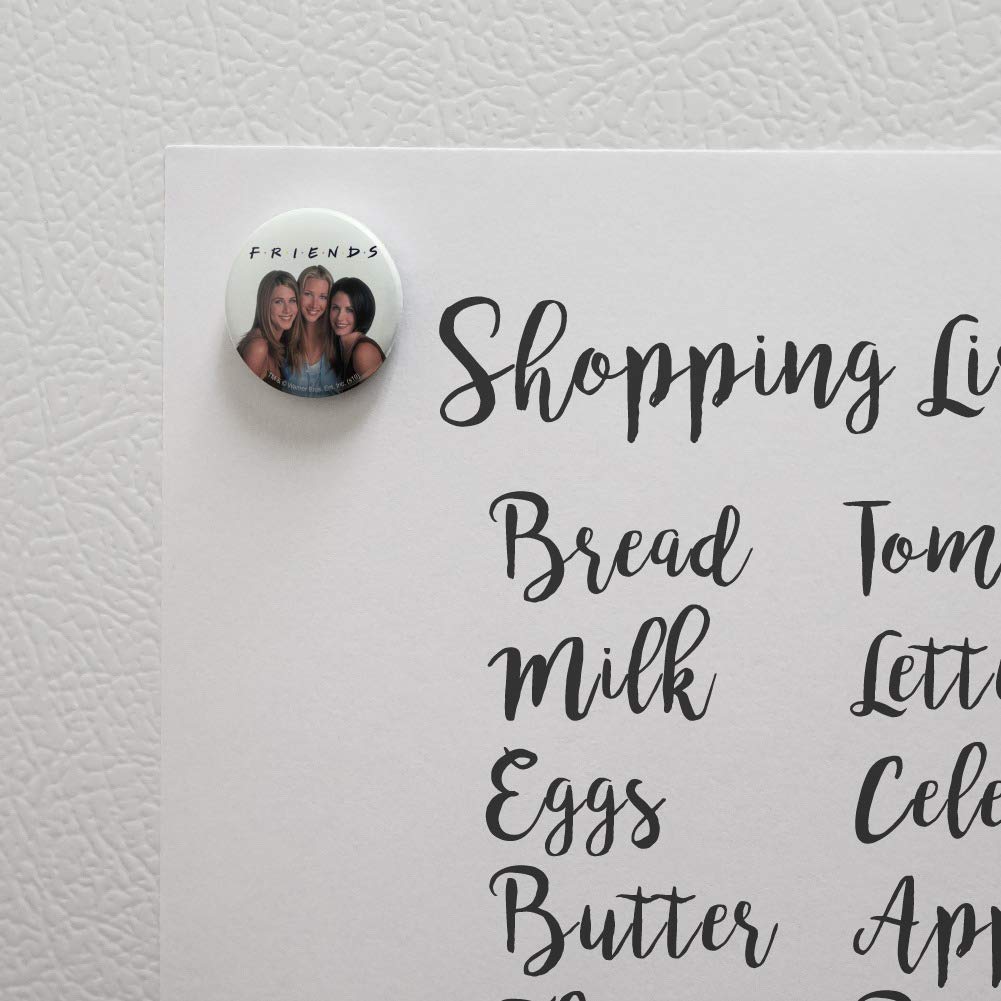 F·R·I·E·N·D·S
TM & © Warner Bros. Ent. Inc. (s10)
Shopping Li
Bread Tom
Milk Lett
Eggs Cele
Butter App